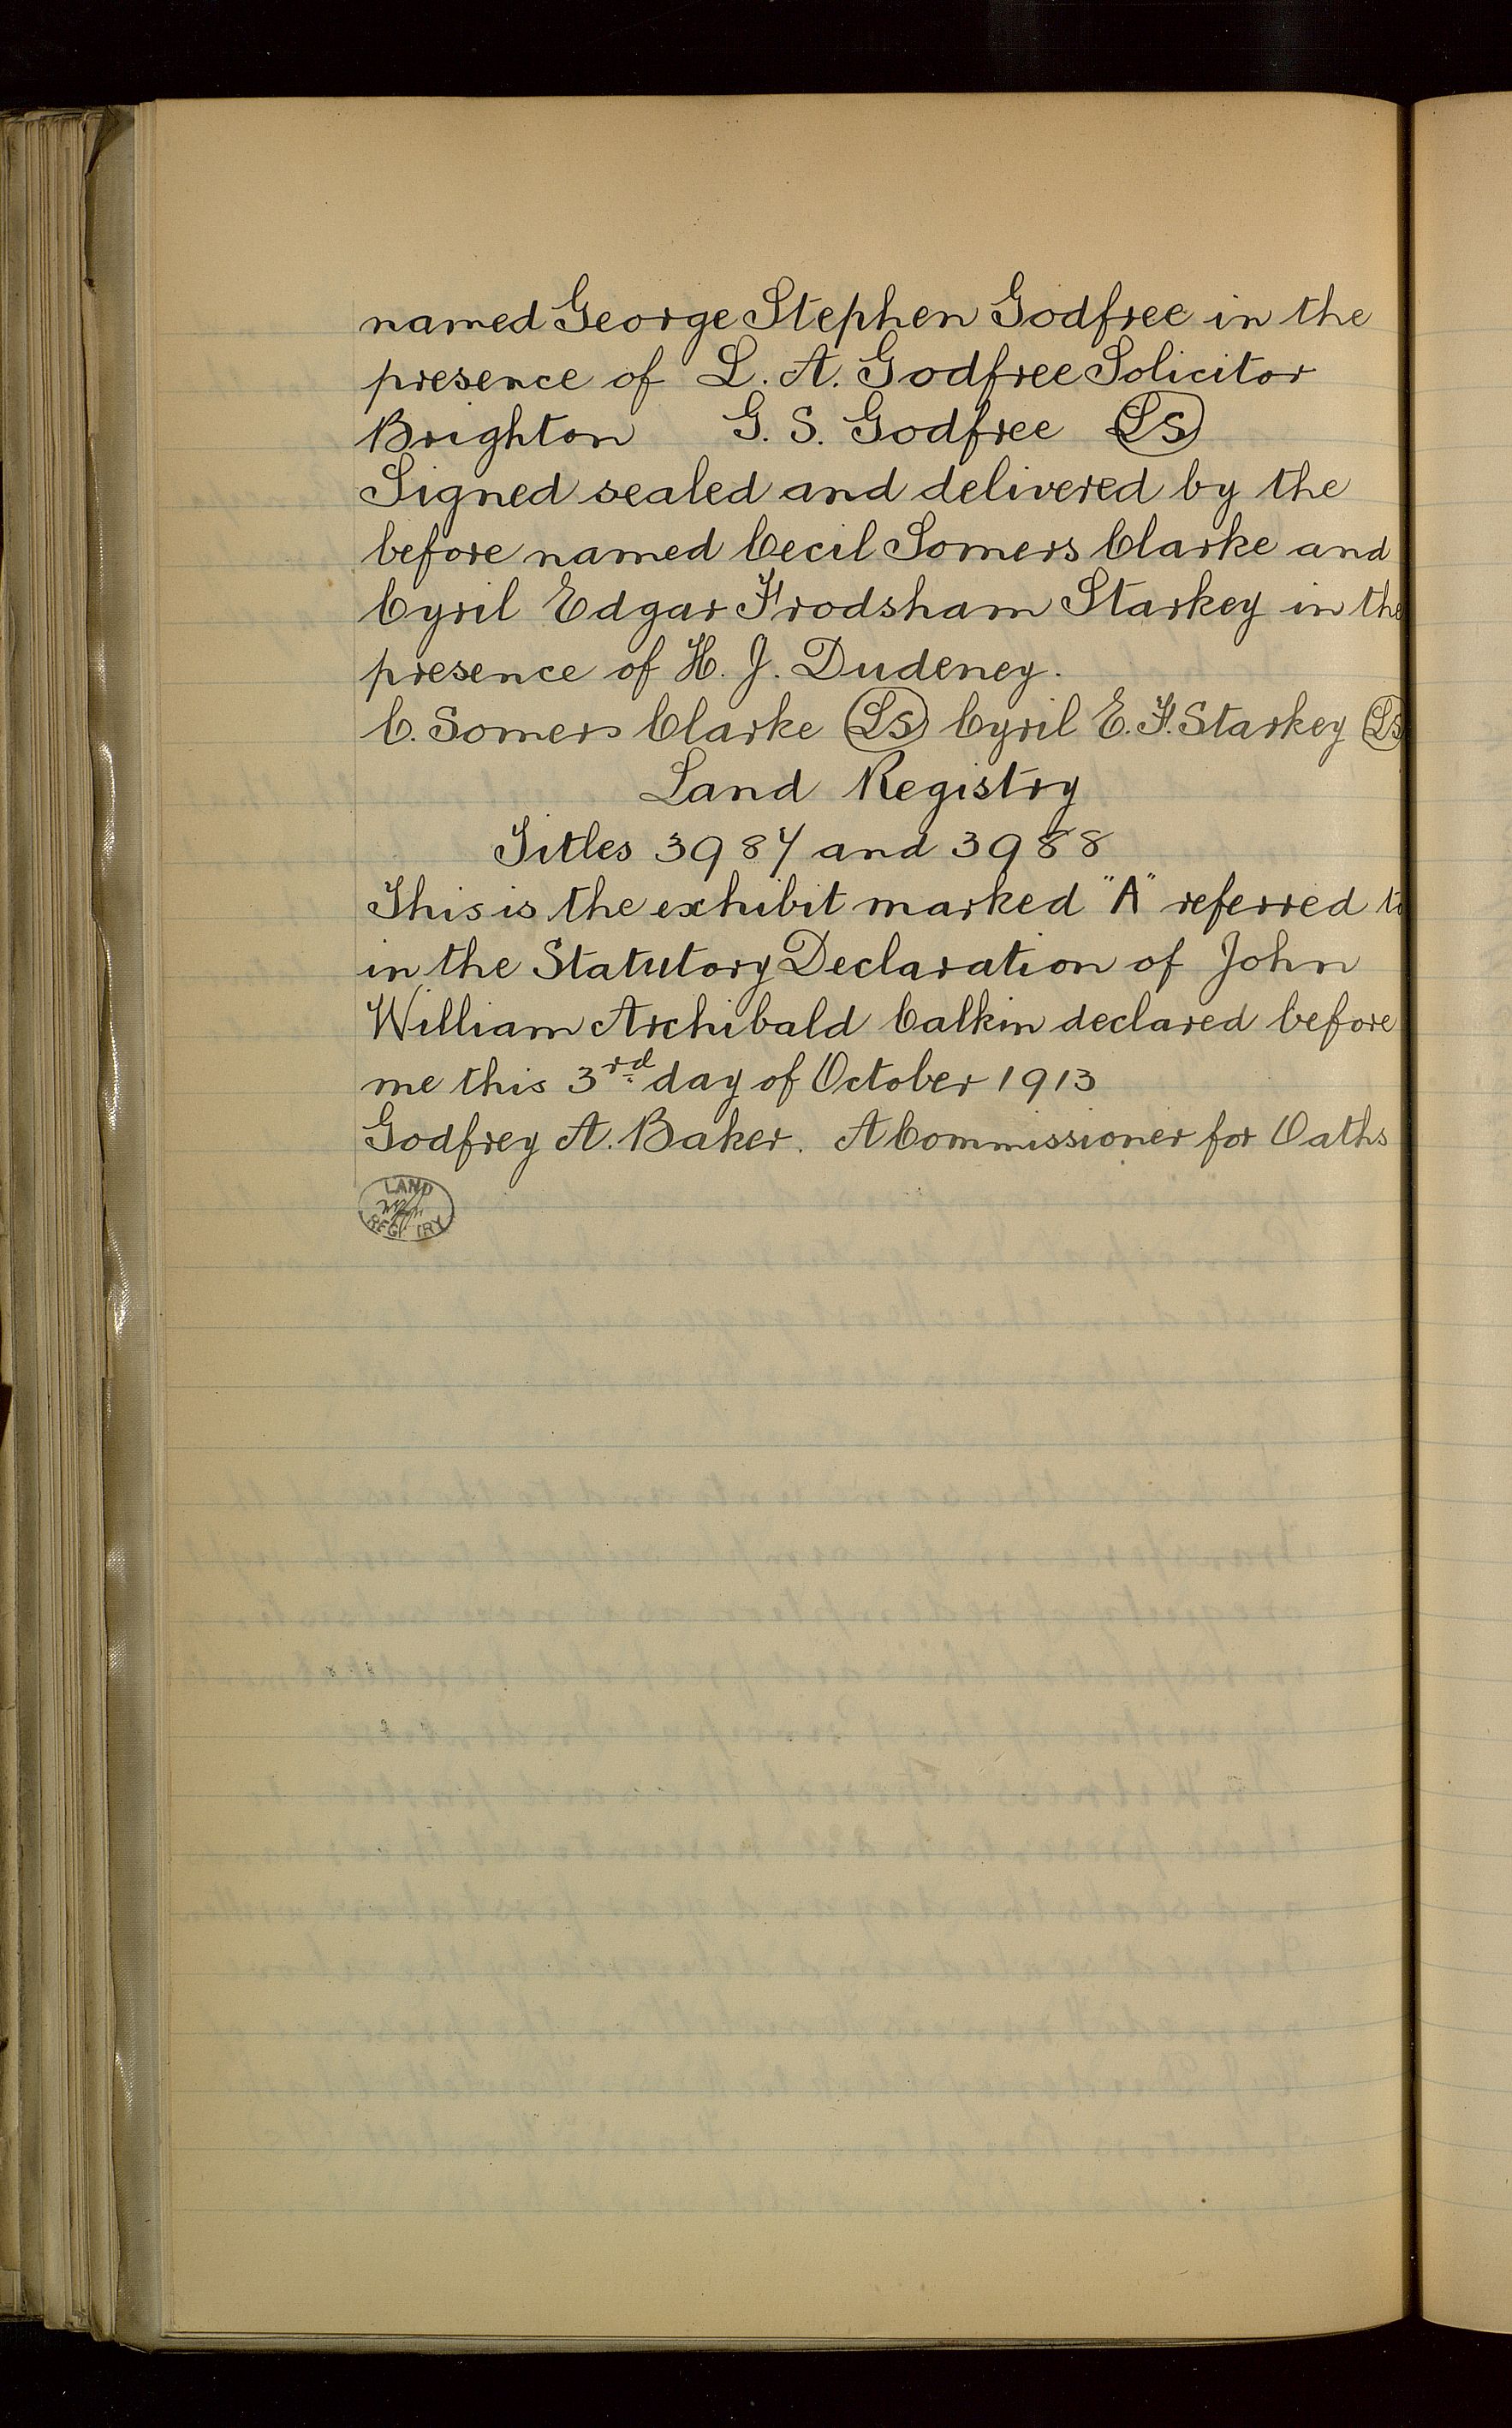 named George Stephen Godfree in the
presence of L. A. Godfree Solicitor
Brighton G. S. Godfree LS
Signed sealed and delivered by the
before named Cecil Somers Clarke and
Cyril Edgar Frodsham Starkey in the
presence of H. J. Dudeney.
C. Somers Clarke LS Cyril E. F. Starkey LS
Land Registry
Titles 3987 and 3988
This is the exhibit marked "A" referred to
in the Statutory Declaration of John
William Archibald Calkin declared before
me this 3rd day of October 1913
Godfrey A. Baker. A Commissioner for Oaths
LAND
REGISTRY